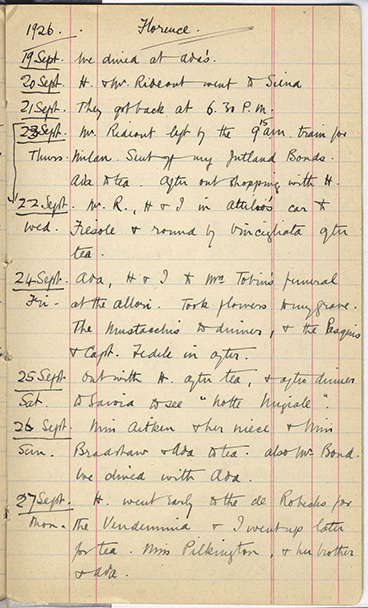 1926. Florence.
19 Sept. We dined at Ada's.
20 Sept. H. & Mr. Rideout went to Siena
21 Sept. They got back at 6.30 P.M.
23 Sept. Mr. Rideout left by the 9.15 am. train for
Thurs. Milan. Sent off my Jutland Bonds.
Ada to tea. After out shopping with H.
22 Sept. Mr. R., H & I in Attilio's car to
Wed. Fiesole & round by Vincigliata after
tea.
24 Sept. Ada, H & I to Mrs Tobin's funeral
Fri. at the Allori. Took flowers to my grave.
The Mustacchis to dinner, & the
& Capt. Fedele in after.
25 Sept. Out with H. after tea, & after dinner
Sat. to Savoia to see "Notte Nuziale".
26 Sept. Miss Aitken & her niece & Miss
Sun. Bradshaw & Ada to tea. also Mr. Bond.
We dined with Ada.
27 Sept. H. went early to the de for
Mon. the Vendemmia & I went up later
for tea. Miss Pilkington, & her brother
& Ada.